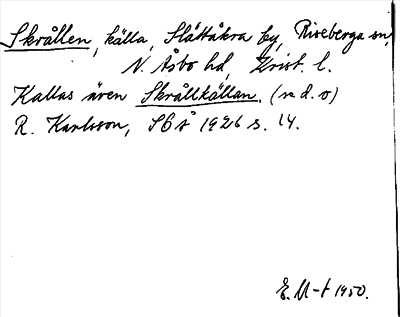 Skrållen, källa, Slättåkra by, Riseberga sn,
N. Åsbo hd, Krist. l.
Kallas även Skrållkällan. (s.d.o)
R. Karlsson, SCÅ 1926 s. 14.
E. M-t 1950.